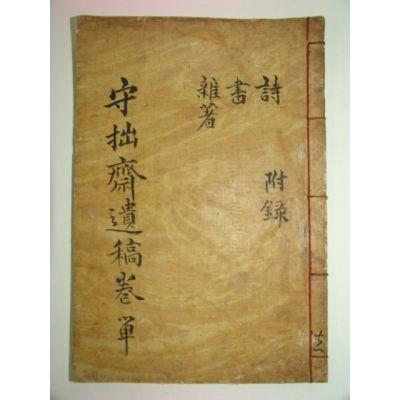 詩 附錄
書
雜著
守拙齋遺稿卷單